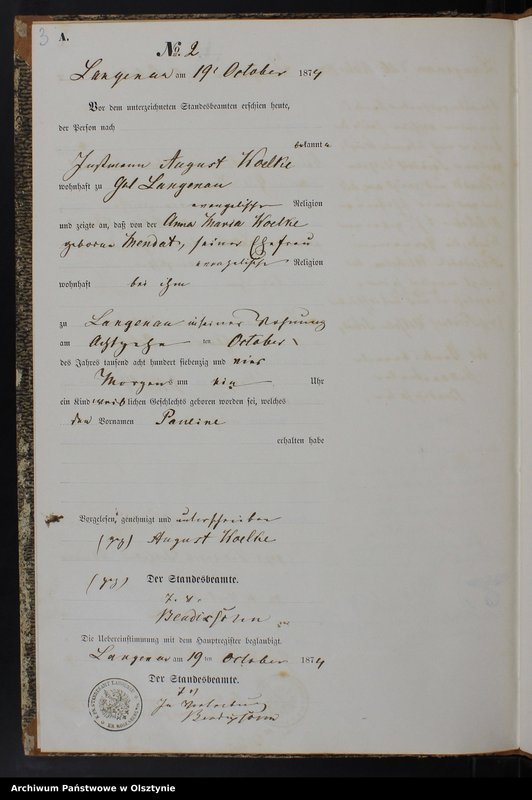 3
A.
No. 2
Langenau am 19t October 1874
Vor dem unterzeichneten Standesbeamten erschien heute,
der Person nach
bekannt
Instmann August Koelke
wohnhaft zu Gut Langenau
evangelischer Religion
und zeigte an, daß von der Anna Maria Koelke
geborne Mendat, seiner Ehefrau
evangelischer Religion
wohnhaft bei ihm
zu Langenau in seiner Wohnung
am Achtzehn ten October
des Jahres tausend acht hundert siebenzig und vier
Morgens um ein Uhr
ein Kind weiblichen Geschlechts geboren worden sei, welches
den Vornamen Pauline
erhalten habe
Vorgelesen, genehmigt und unterschrieben
(gez) August Koelke
(gez) Der Standesbeamte.
Bendixsohn
Die Uebereinstimmung mit dem Hauptregister beglaubigt.
Langenau am 19 ten October 1874
Der Standesbeamte.
In Vertretung
Bendixsohn
Archiwum Państwowe w Olsztynie